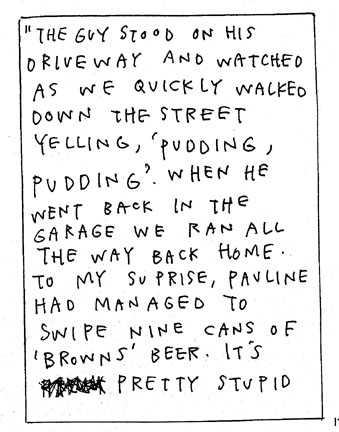 "THE GUY STOOD ON HIS
DRIVEWAY AND WATCHED
AS WE QUICKLY WALKED
DOWN THE STREET
YELLING, 'PUDDING,
PUDDING'. WHEN HE
WENT BACK IN THE
GARAGE WE RAN ALL
THE WAY BACK HOME.
TO MY SUPRISE, PAULINE
HAD MANAGED TO
SWIPE NINE CANS OF
'BROWNS' BEER. IT'S
PRETTY STUPID